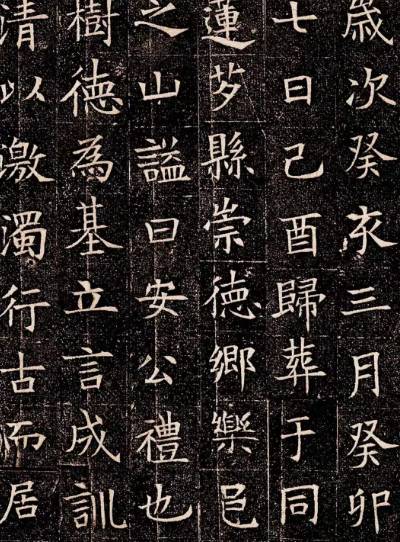 歲次癸亥三月癸卯
七日己酉歸葬于同
蓮芍縣崇徳鄉樂邑
之山謚曰安公禮也
樹徳為基立言成訓
清以激濁行古而居